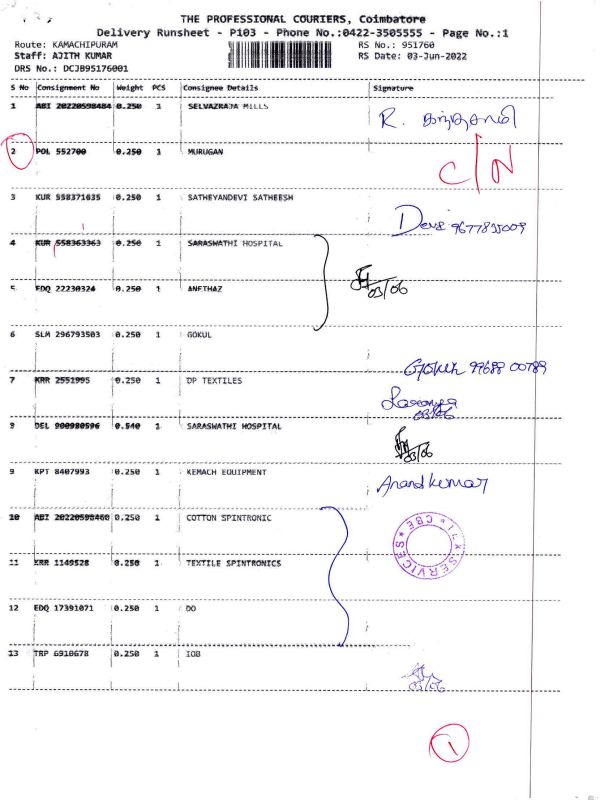 THE PROFESSIONAL COURIERS, Coimbatore
Delivery Runsheet - P103 - Phone No.:0422-3505555 - Page No.:1
Route: KAMACHIPURAM RS No.: 951760
Staff: AJITH KUMAR RS Date: 03-Jun-2022
DRS No.: DCJB95176001
S No Consignment No Weight PCS Consignee Details Signature
1 ABI 20220598484 0.250 1 SELVAZRAJA MILLS
R. கந்தசாமி
2 POL 552700 0.250 1 MURUGAN
C/N
3 KUR 558371635 0.250 1 SATHEYANDEVI SATHEESH
Devi 9677835009
4 KUR 558363363 0.250 1 SARASWATHI HOSPITAL
03/06
5 EDQ 22230324 0.250 1 ANETHAZ
6 SLM 296793503 0.250 1 GOKUL
Gokul 99688 00789
7 KRR 2551995 0.250 1 DP TEXTILES
03/06
8 DEL 900980596 0.540 1 SARASWATHI HOSPITAL
03/06
9 KPT 8407993 0.250 1 KEMACH EQUIPMENT
Anandkumar
10 ABI 20220598460 0.250 1 COTTON SPINTRONIC
SERVICES * CBE *
11 KRR 1149528 0.250 1 TEXTILE SPINTRONICS
12 EDQ 17391071 0.250 1 DO
13 TRP 6910678 0.250 1 IOB
03/06
1